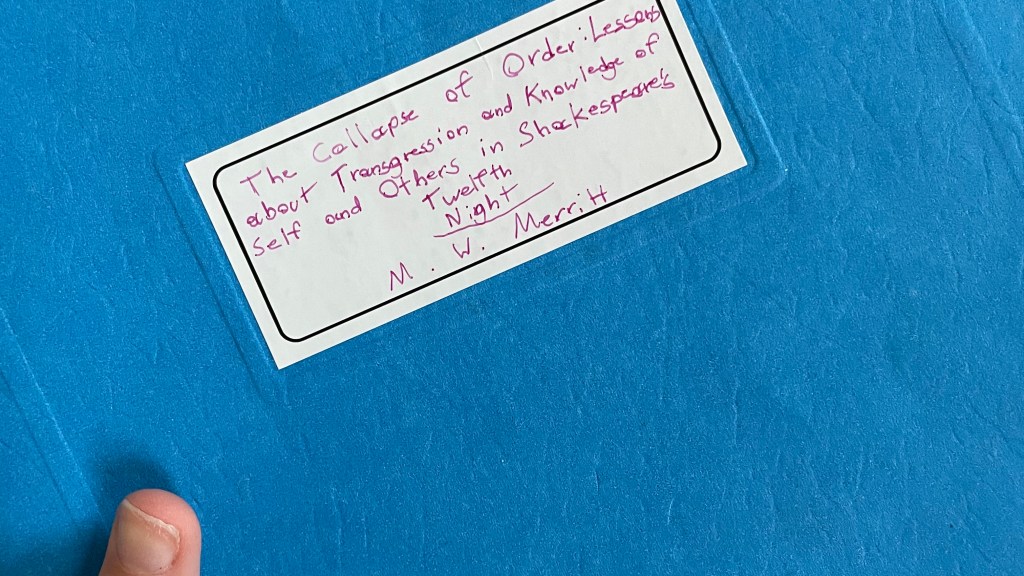 The Collapse of Order: Lessons
about Transgression and Knowledge of
Self and Others in Shakespeare's
Twelfth
Night
M. W. Merritt